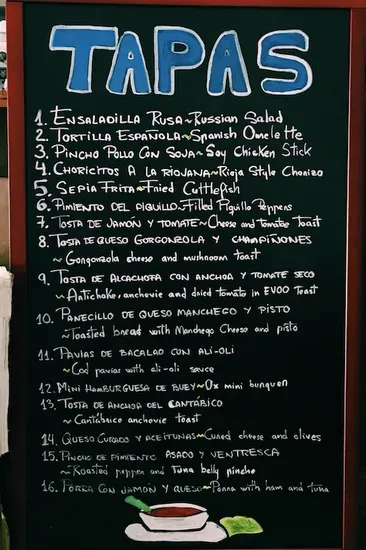 TAPAS
1. ENSALADILLA RUSA~Russian Salad
2. TORTILLA ESPAÑOLA~Spanish Omelette
3. PINCHO POLLO CON SOJA~Soy Chicken Stick
4. CHORICITOS A LA RIOJANA~Rioja Style Chorizo
5. SEPIA FRITA~Fried Cuttlefish
6. PIMIENTO DEL PIQUILLO~Filled Piquillo Peppers
7. TOSTA DE JAMÓN Y TOMATE~Cheese and Tomatoe Toast
8. TOSTA DE QUESO GORGONZOLA Y CHAMPIÑONES
~Gongonzola cheese and mushroom toast
9. TOSTA DE ALCACHOFA CON ANCHOA Y TOMATE SECO
~Antichoke, anchovie and dried tomato in EVOO Toast
10. PANECILLO DE QUESO MANCHEGO Y PISTO
~Toasted bread with Manchego Cheese and pisto
11. PAVIAS DE BACALAO CON ALI-OLI
~Cod pavias with ali-oli sauce
12. MINI HAMBURGUESA DE BUEY~Ox mini burguer
13. TOSTA DE ANCHOA DEL CANTÁBICO
~Cantábrico anchovie toast
14. QUESO CURADO Y ACEITUNAS~Cured cheese and olives
15. PINCHO DE PIMIENTO ASADO Y VENTRESCA
~Roasted pepper and Tuna belly pincho
16. PORRA CON JAMÓN Y QUESO~Porra with ham and tuna